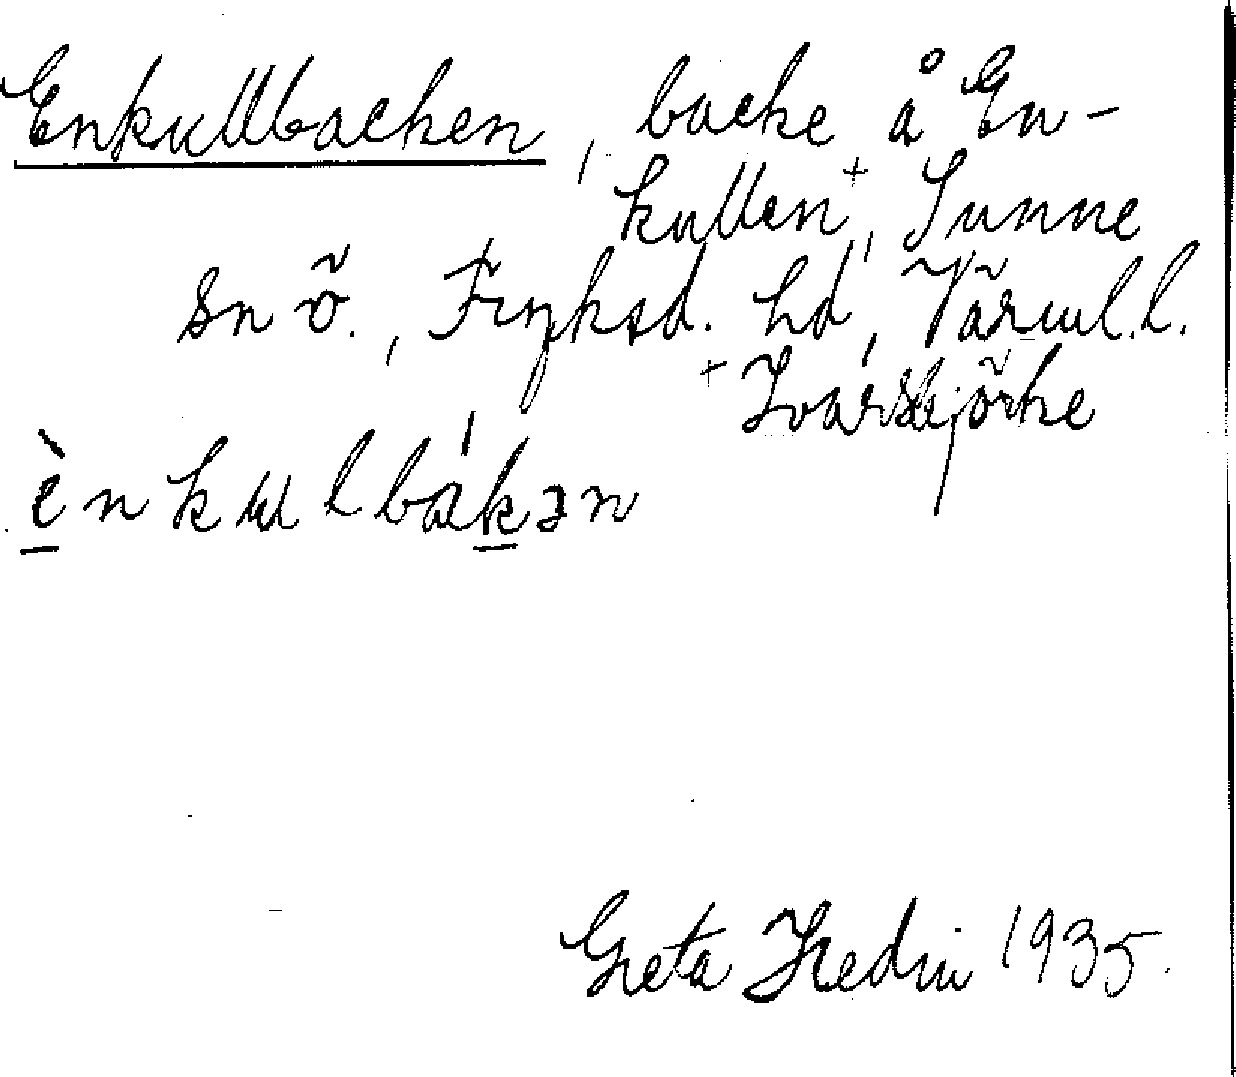 Enkullbacken, backe å En-
kullen+, Sunne
sn ö., Fryksd. hd, Värml. l.
+ Ivarsbjörke
ènkulbákən
Greta Hedin 1935.